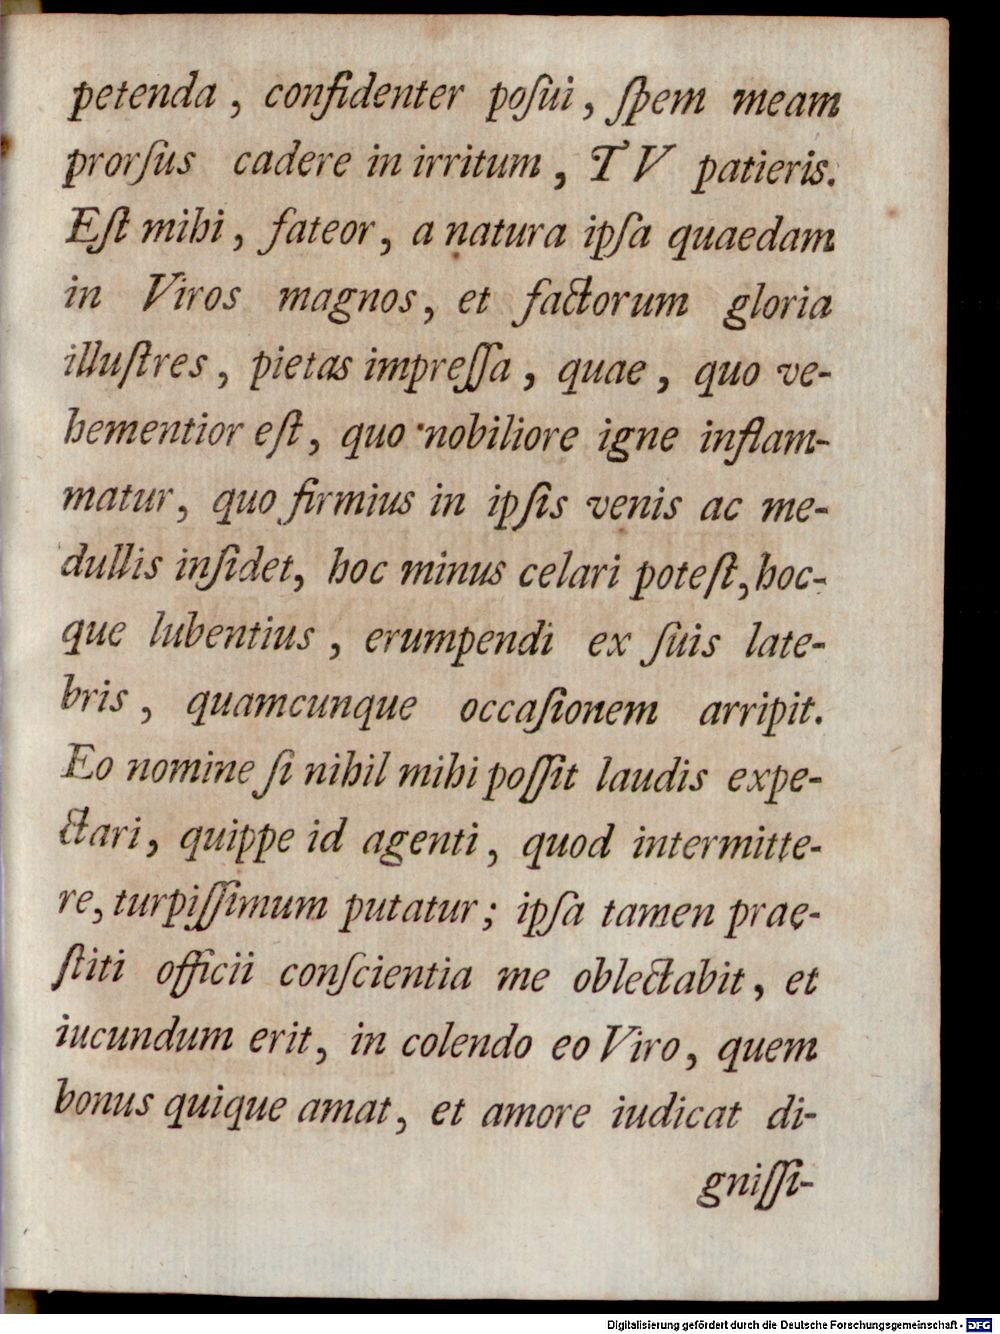 petenda , confidenter poſui , ſpem meam
prorſus cadere in irritum , TV patieris.
Eſt mihi , fateor , a natura ipſa quaedam
in Viros magnos , et factorum gloria
illuſtres , pietas impreſſa , quae , quo ve-
hementior eſt , quo nobiliore igne inflam-
matur , quo firmius in ipſis venis ac me-
dullis inſidet, hoc minus celari poteſt, hoc-
que lubentius , erumpendi ex ſuis late-
bris , quamcunque occaſionem arripit.
Eo nomine ſi nihil mihi poſſit laudis expe-
ctari , quippe id agenti , quod intermitte-
re, turpiſſimum putatur ; ipſa tamen prae-
ſtiti officii conſcientia me oblectabit , et
iucundum erit , in colendo eo Viro , quem
bonus quique amat , et amore iudicat di-
gniſſi-
Digitalisierung gefördert durch die Deutsche Forschungsgemeinschaft - DFG